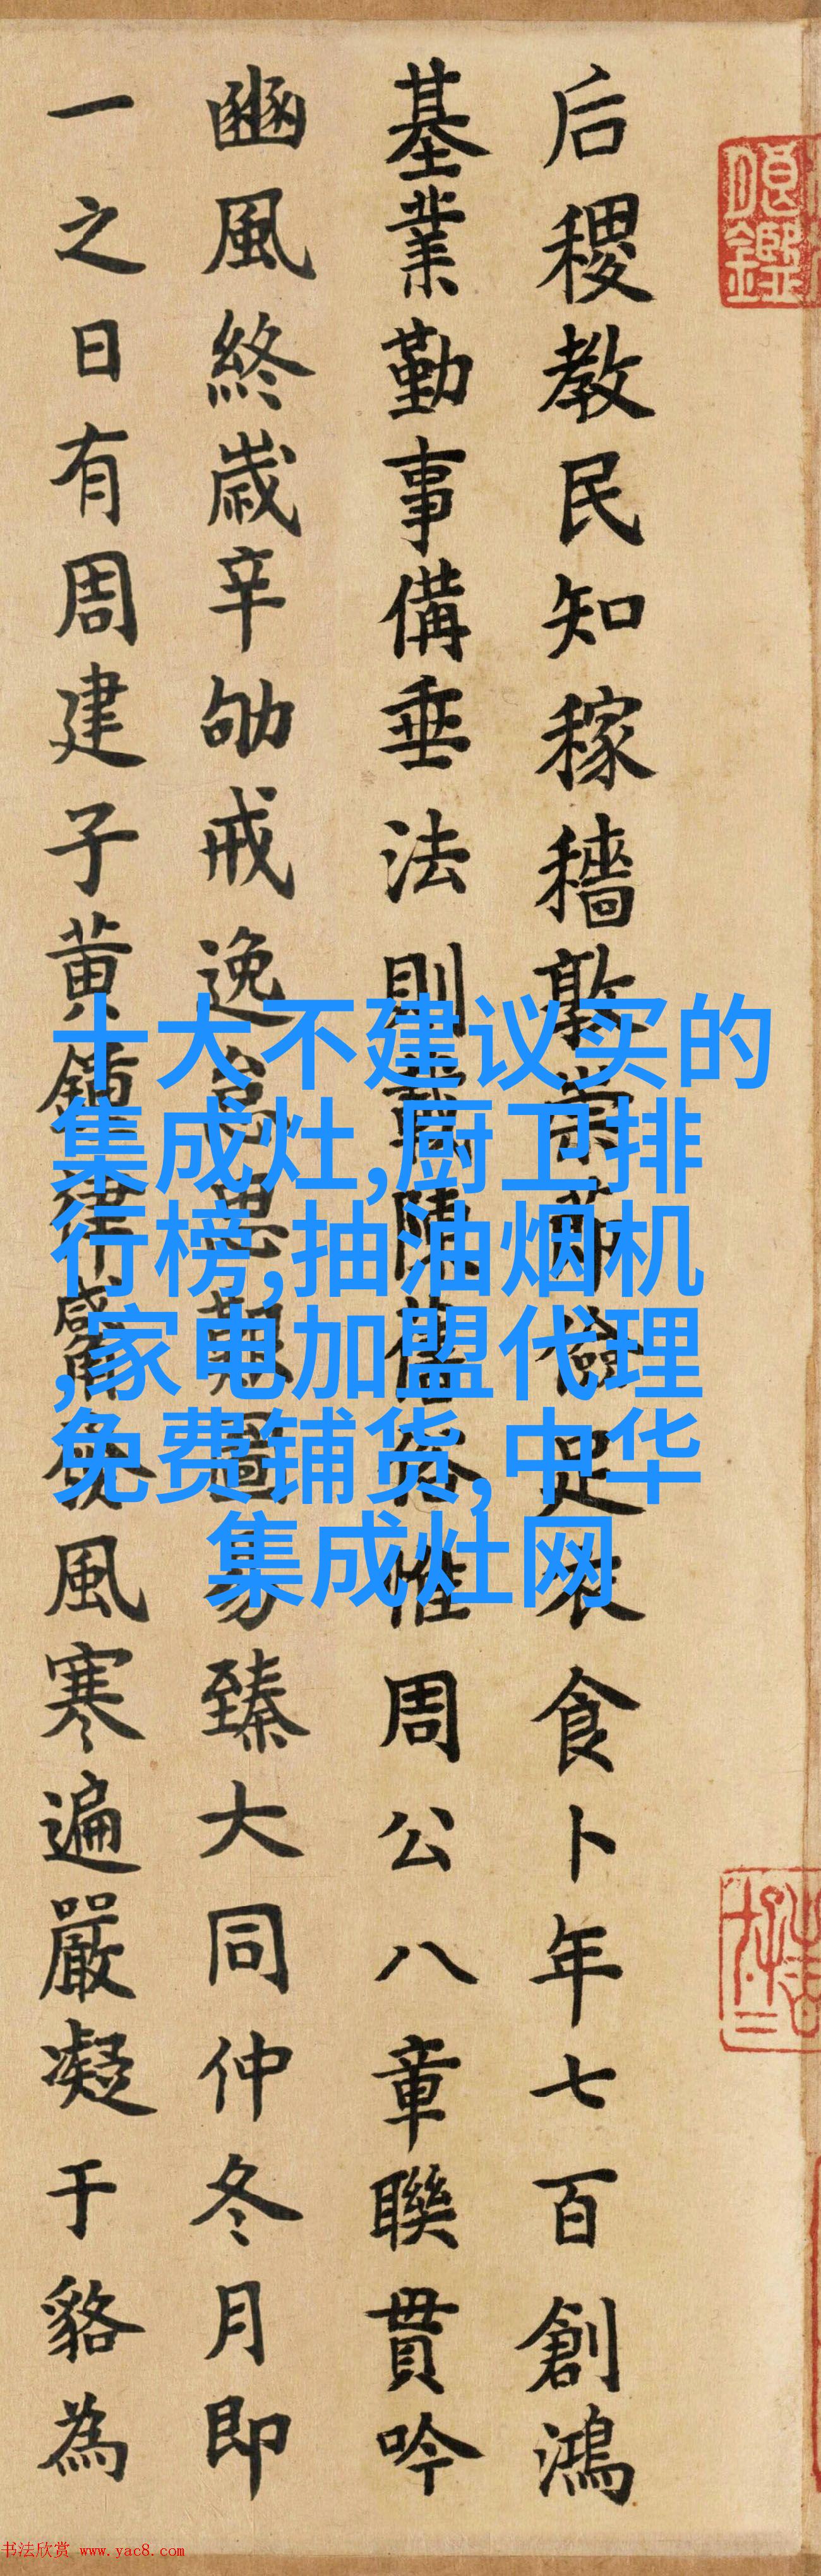 后稷教民知稼穡敦崇節儉足衣食卜年七百創鴻
基業勤事備垂法則載陳舊俗惟周公八章聯貫吟
豳風終歲辛劬戒逸怠思艱圖易臻大同仲冬月即
一之日有周建子黃鍾律觱發風寒遍嚴凝于貉為
十大不建议买的
集成灶,厨卫排
行榜,抽油烟机
,家电加盟代理
免费铺货,中华
集成灶网
书法欣赏 www.yac8.com